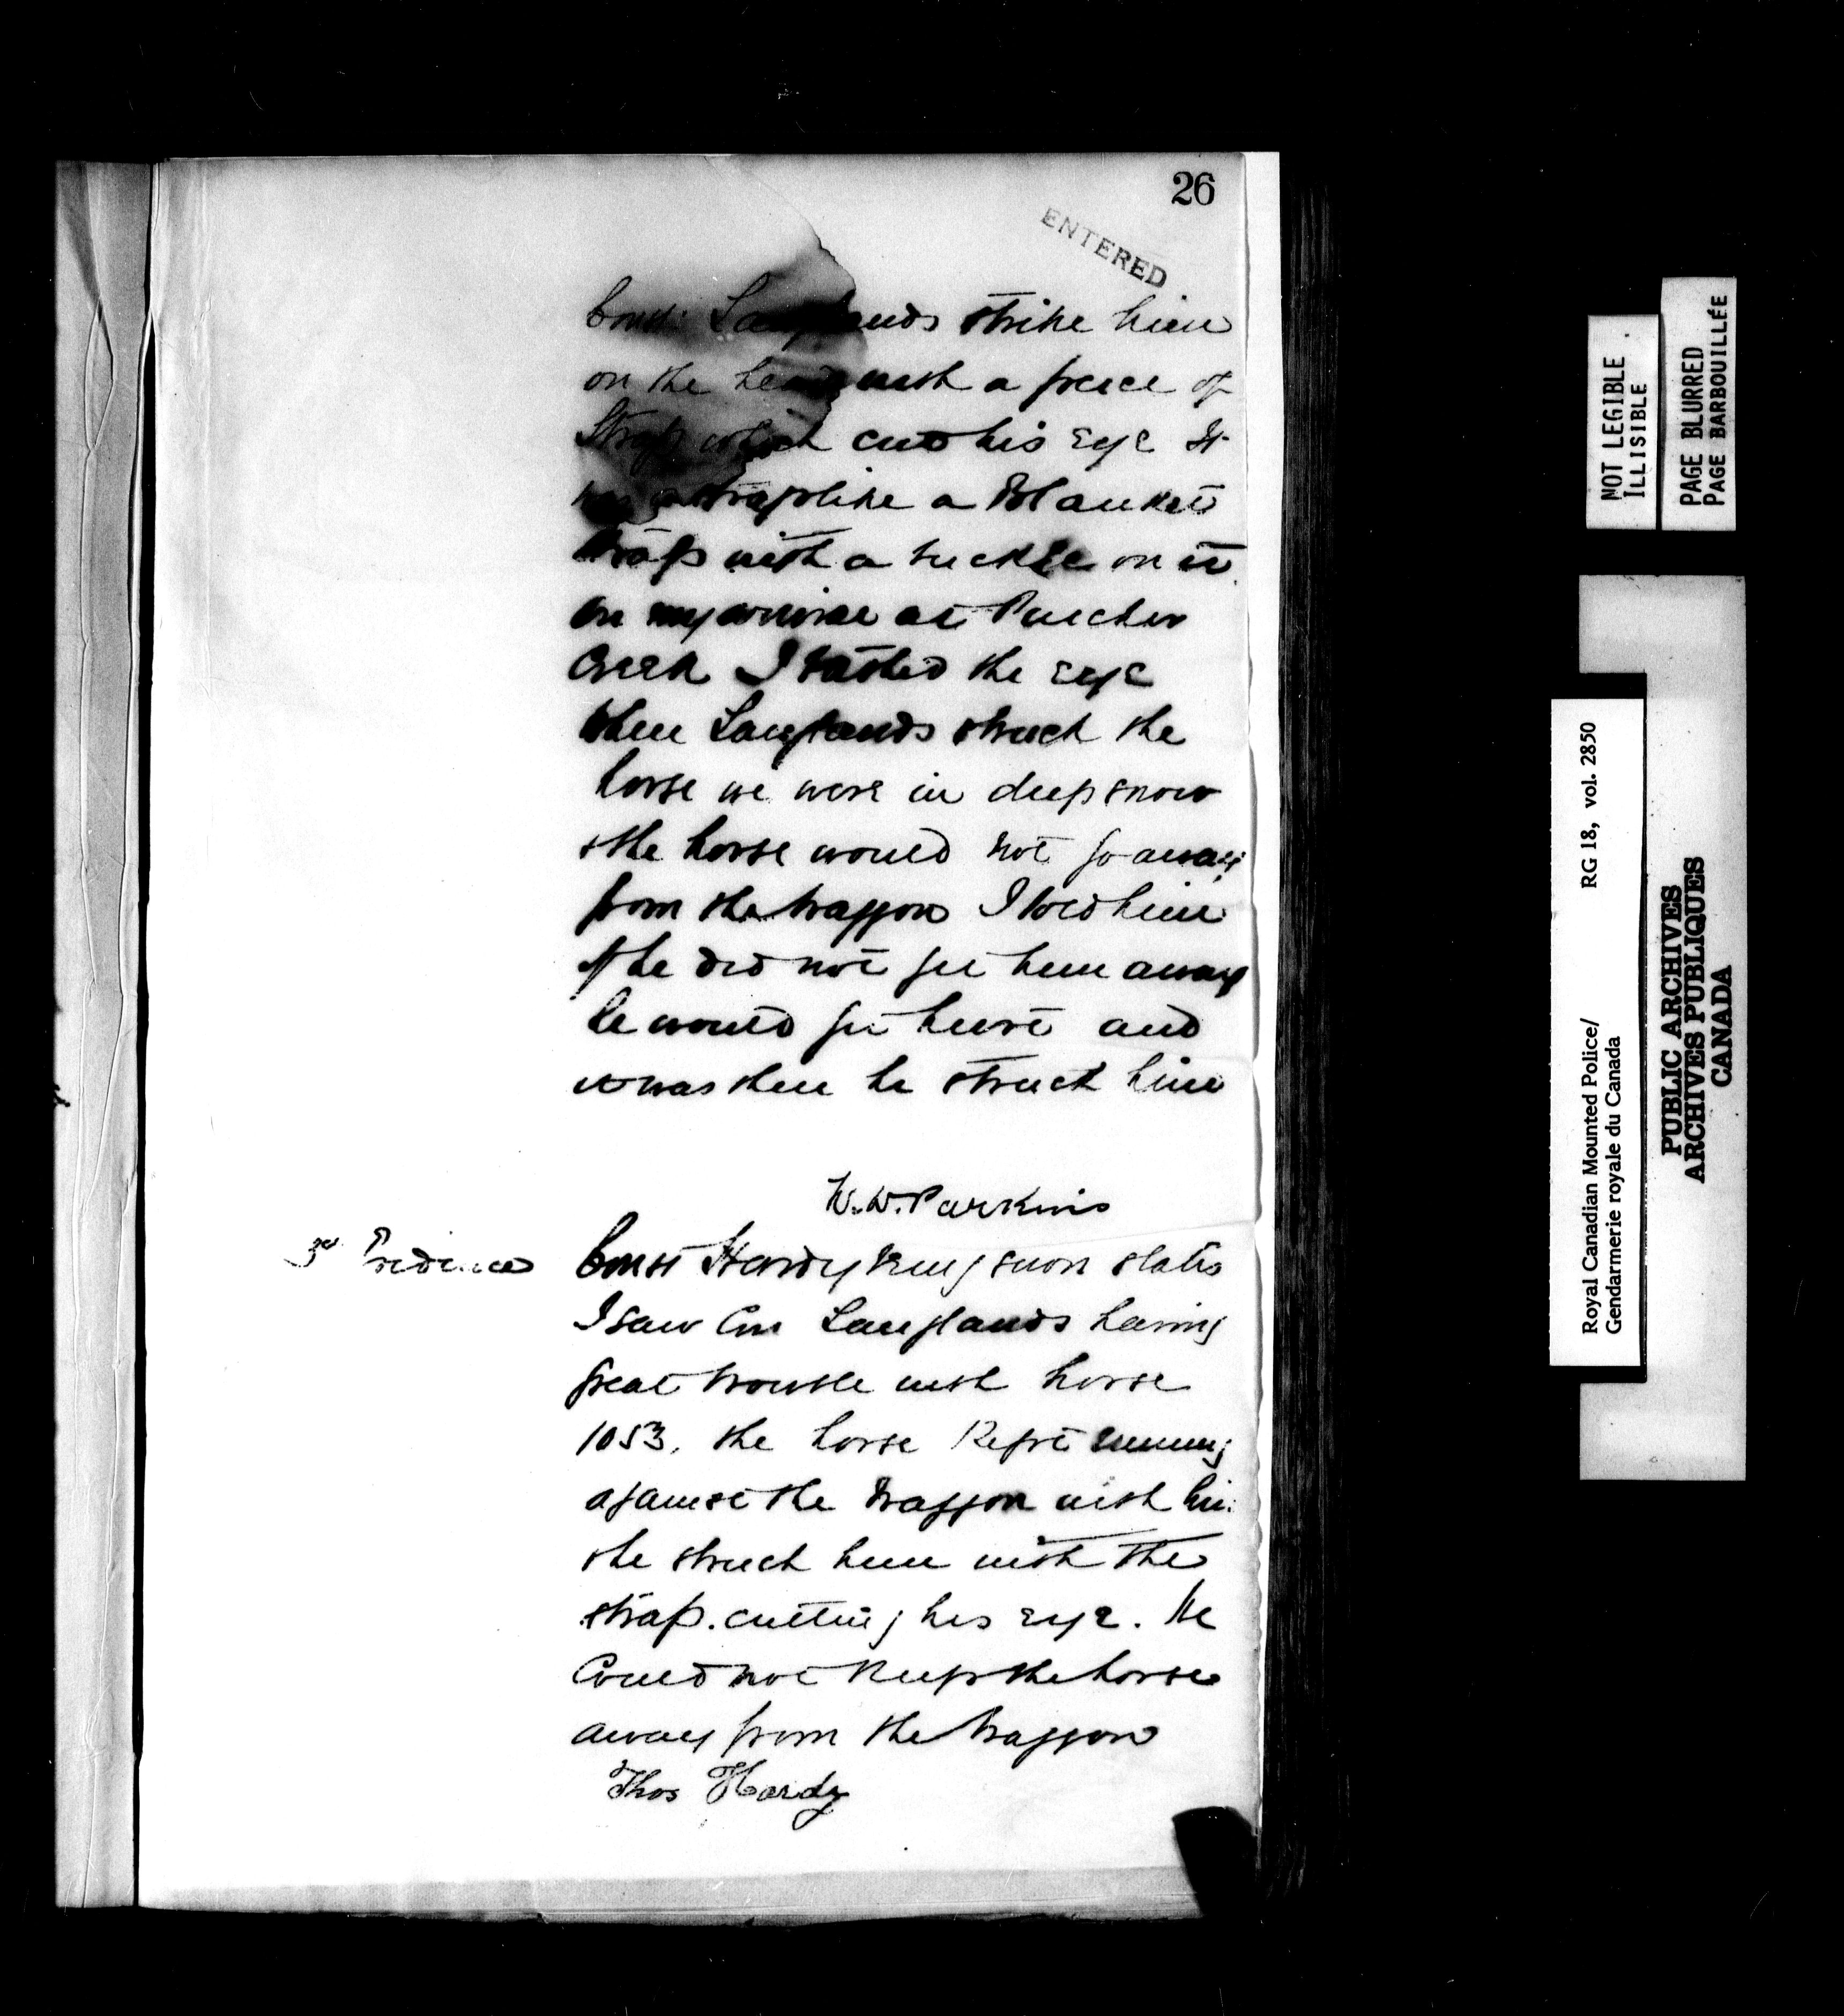 26
ENTERED
Const. Langlands strike him
on the head with a piece of
Strap which cut his eye It
was a strap like a Blanket
Strap with a buckle on it
On my arrival at Pincher
Creek I bathed the eye
When Langlands struck the
horse we were in deep snow
& the horse would not go away
from the waggon I told him
if he did not get him away
he would get hurt and
it was then he struck him
W. W. Parkins
3rd Evidence
Const Hardy being sworn states
I saw Con Langlands having
great trouble with horse
1053, the horse Kept running
against the waggon with him
& he struck him with the
strap. cutting his eye. He
Could not Keep the horse
away from the waggon
Thos Hardy
NOT LEGIBLE
ILLISIBLE
PAGE BLURRED
PAGE BARBOUILLÉE
Royal Canadian Mounted Police/ RG 18, vol. 2850
Gendarmerie royale du Canada
PUBLIC ARCHIVES
ARCHIVES PUBLIQUES
CANADA